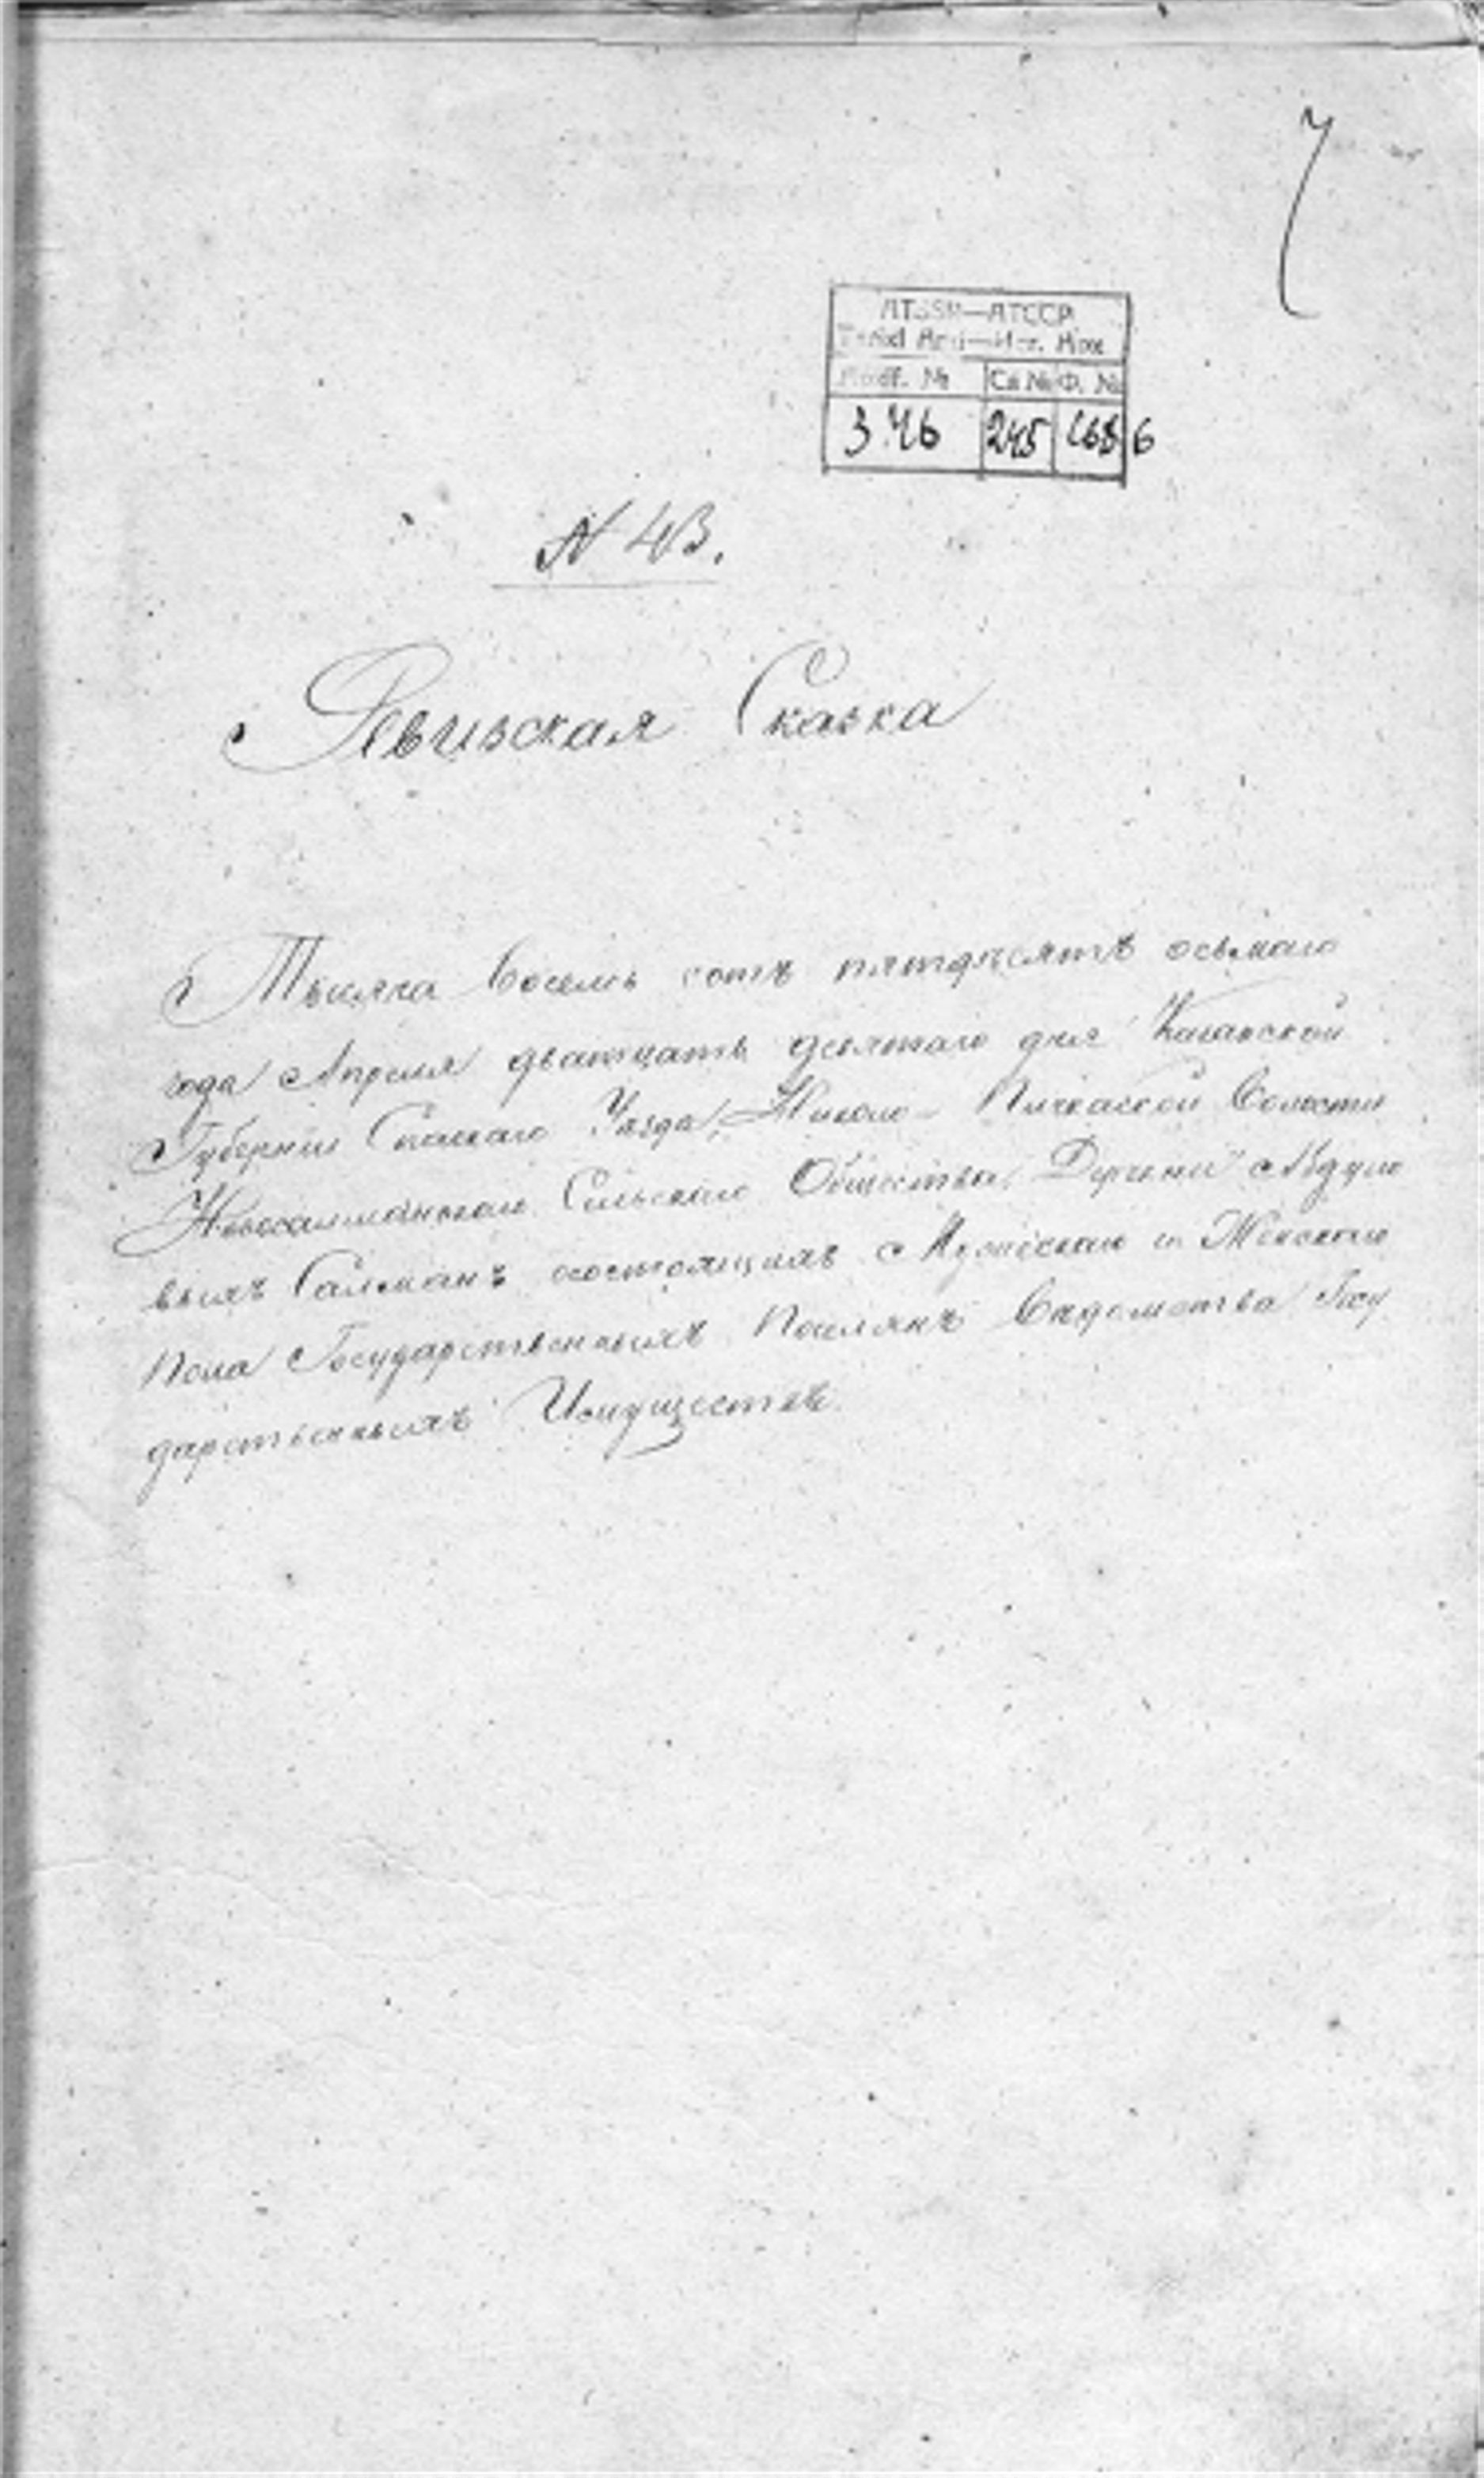 7
ATSSR—АТССР
Tarixi Arxi—Ист. Арх
№ Св № Ф. №
3.46 245 1686
N 43.
Ревизская Сказка
Тысяча восемь сотъ пятдесятъ осьмаго
года Апреля дватцать девятаго дня Казанской
Губернии Спаскаго Уезда, Николо-Пичкаской Волости
Новосалманскаго Сельскаго Общества Деревни Абдуло
выхъ Салманъ состоящихъ Мужескаго и Женскаго
Пола Государственныхъ Поселянъ Ведомства Госу
дарственныхъ Имуществъ.